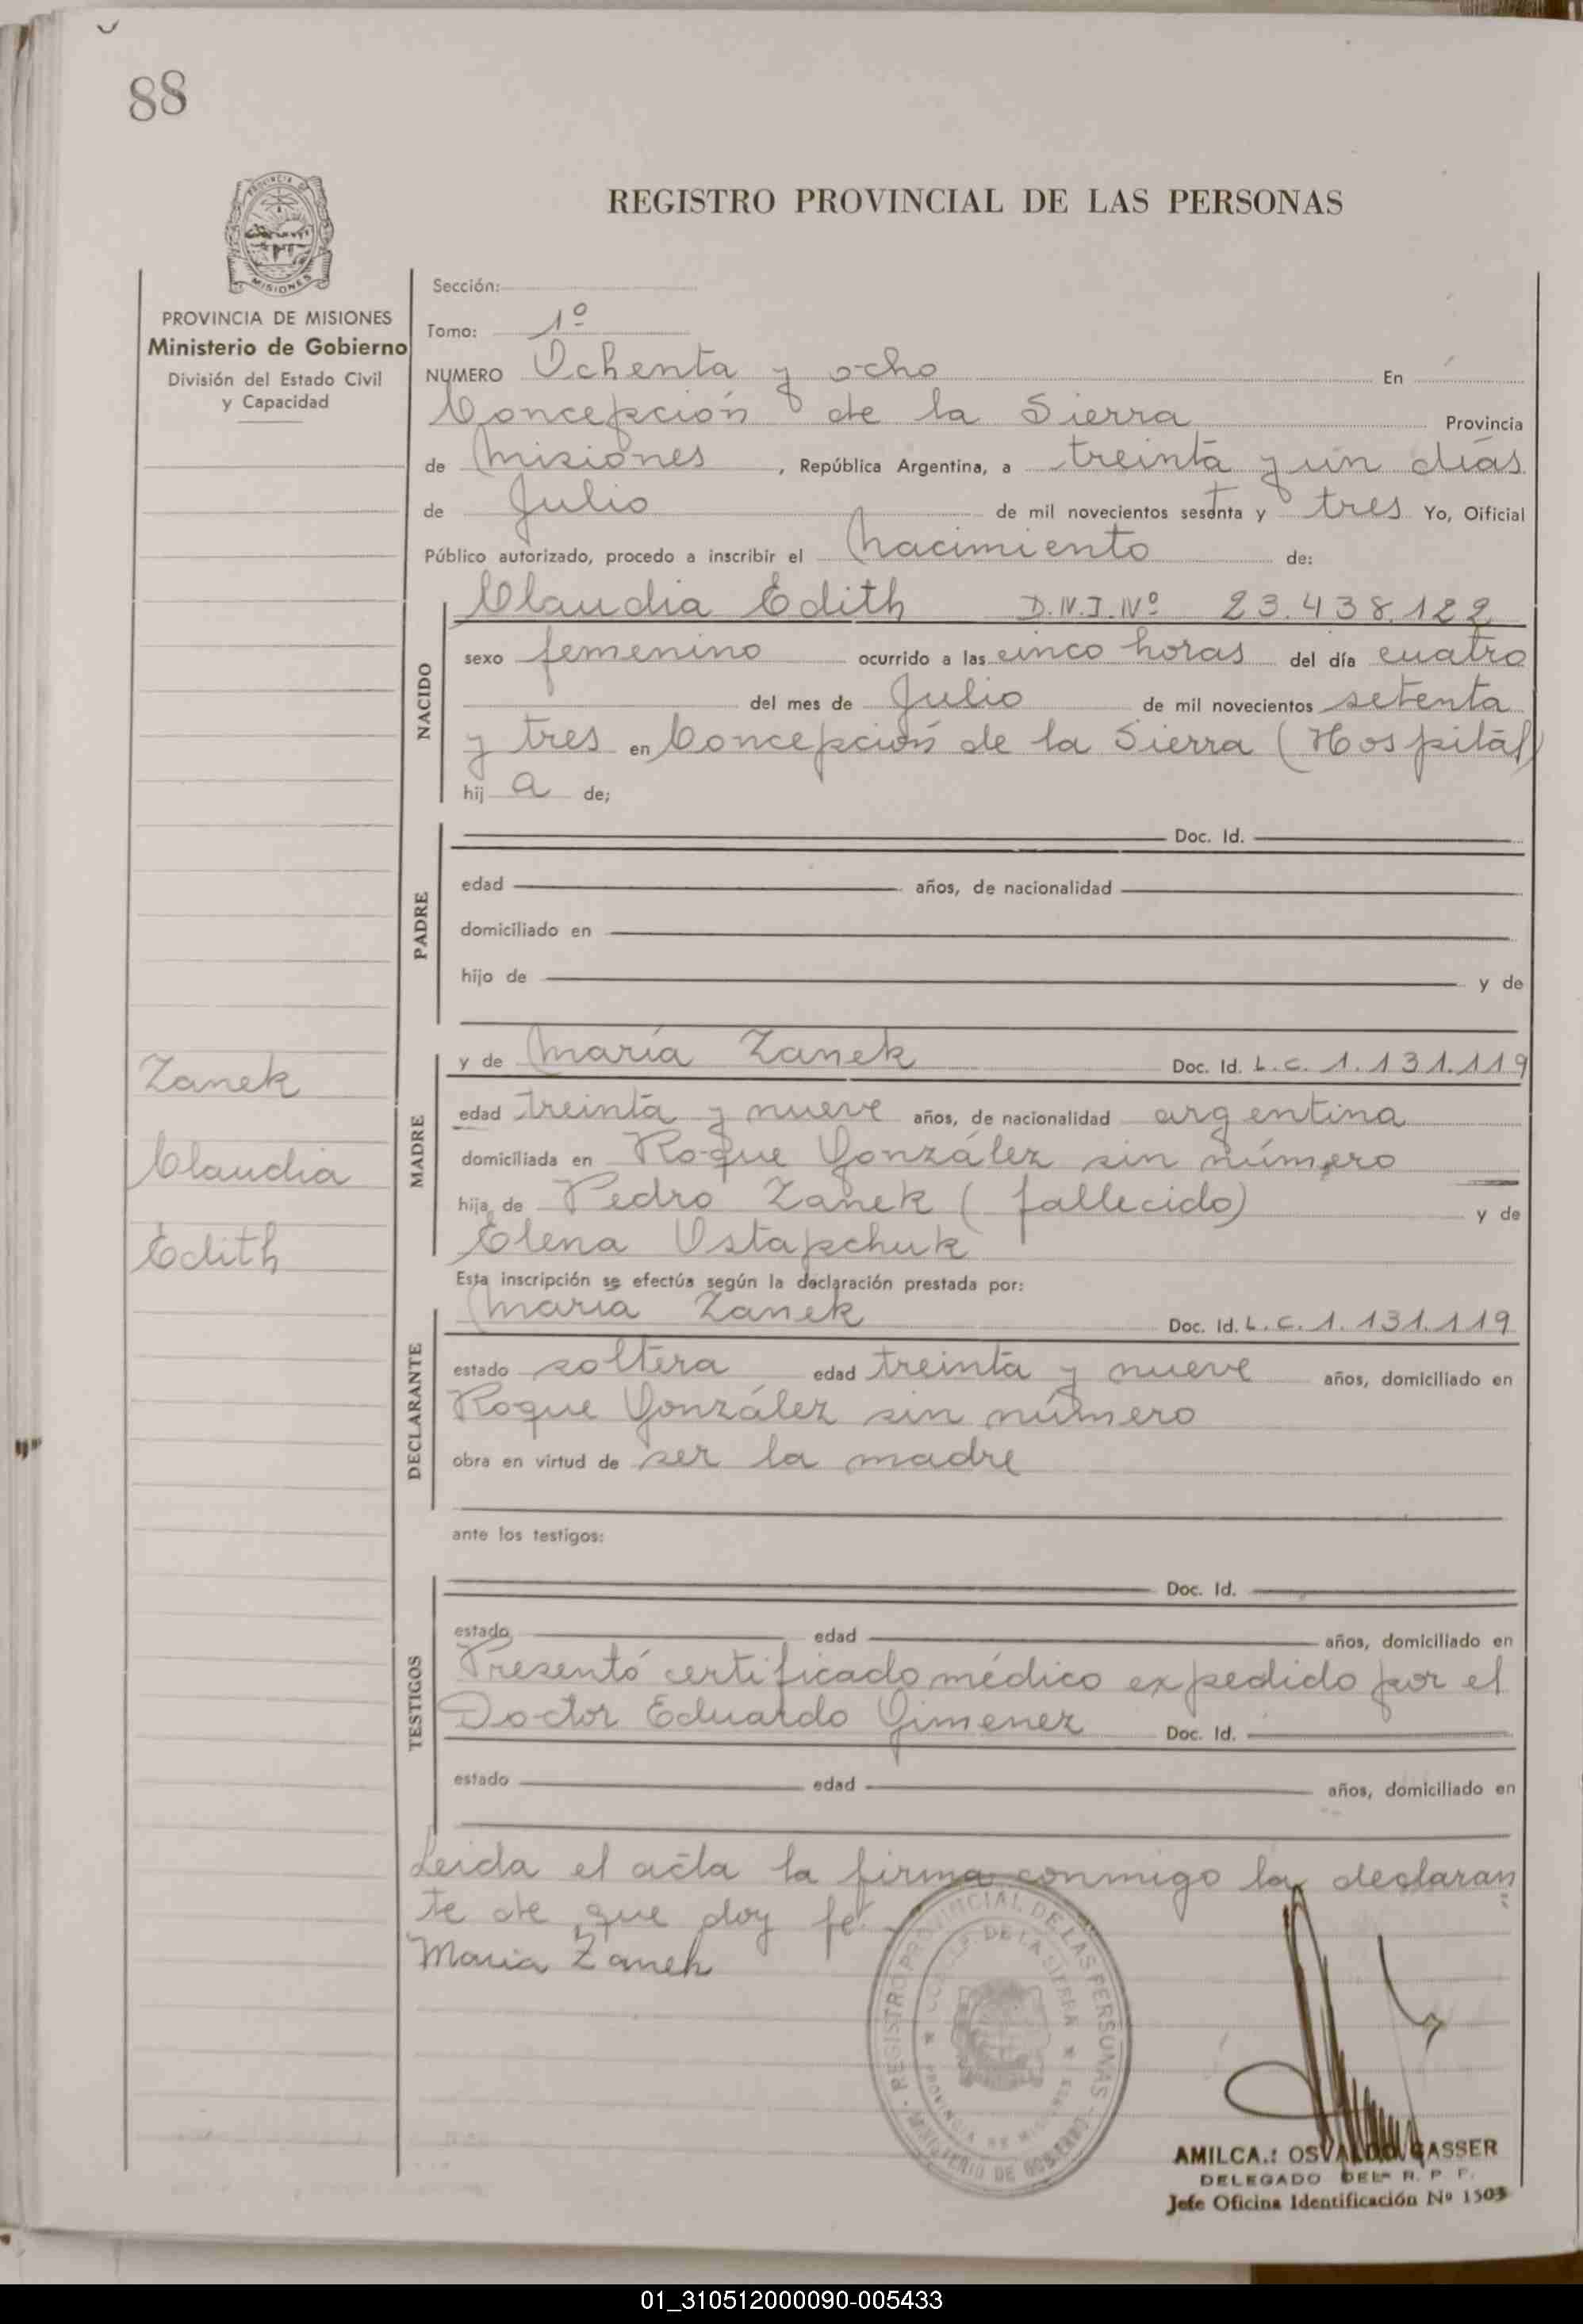 88
REGISTRO PROVINCIAL DE LAS PERSONAS
MISIONES
PROVINCIA DE MISIONES
Ministerio de Gobierno
División del Estado Civil
y Capacidad
Sección:
Tomo: 1º
NUMERO Ochenta y ocho En
Concepción de la Sierra Provincia
de Misiones, República Argentina, a treinta y un días
de Julio de mil novecientos sesenta y tres Yo, Oificial
Público autorizado, procedo a inscribir el Nacimiento de:
NACIDO
Claudia Edith D.N.I. Nº 23.438.122
sexo femenino ocurrido a las cinco horas del día cuatro
del mes de Julio de mil novecientos setenta
y tres en Concepción de la Sierra (Hospital)
hij a de;
PADRE
Doc. Id.
edad años, de nacionalidad
domiciliado en
hijo de y de
Zanek
Claudia
Edith
MADRE
y de María Zanek Doc. Id. L.C. 1.131.119
edad treinta y nueve años, de nacionalidad argentina
domiciliada en Roque González sin número
hija de Pedro Zanek (fallecido) y de
Elena Ostapchuk
Esta inscripción se efectúa según la declaración prestada por:
DECLARANTE
María Zanek Doc. Id. L.C. 1.131.119
estado soltera edad treinta y nueve años, domiciliado en
Roque González sin número
obra en virtud de ser la madre
ante los testigos:
TESTIGOS
Doc. Id.
estado edad años, domiciliado en
Presentó certificado médico expedido por el
Doctor Eduardo Gimenez Doc. Id.
estado edad años, domiciliado en
Leida el acta la firma conmigo la declaran
te de que doy fe.
Maria Zanek
REGISTRO PROVINCIAL DE LAS PERSONAS
DE LA SIERRA
PROVINCIA DE MISIONES
MINISTERIO DE GOBIERNO
AMILCA.: OSVALDO GASSER
DELEGADO DEL R. P. P.
Jefe Oficina Identificación Nº 1503
01_310512000090-005433